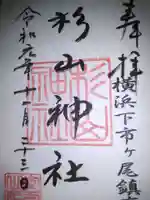 奉拝
横浜下市ヶ尾鎮
杉山神社
令和元年十一月二十三日